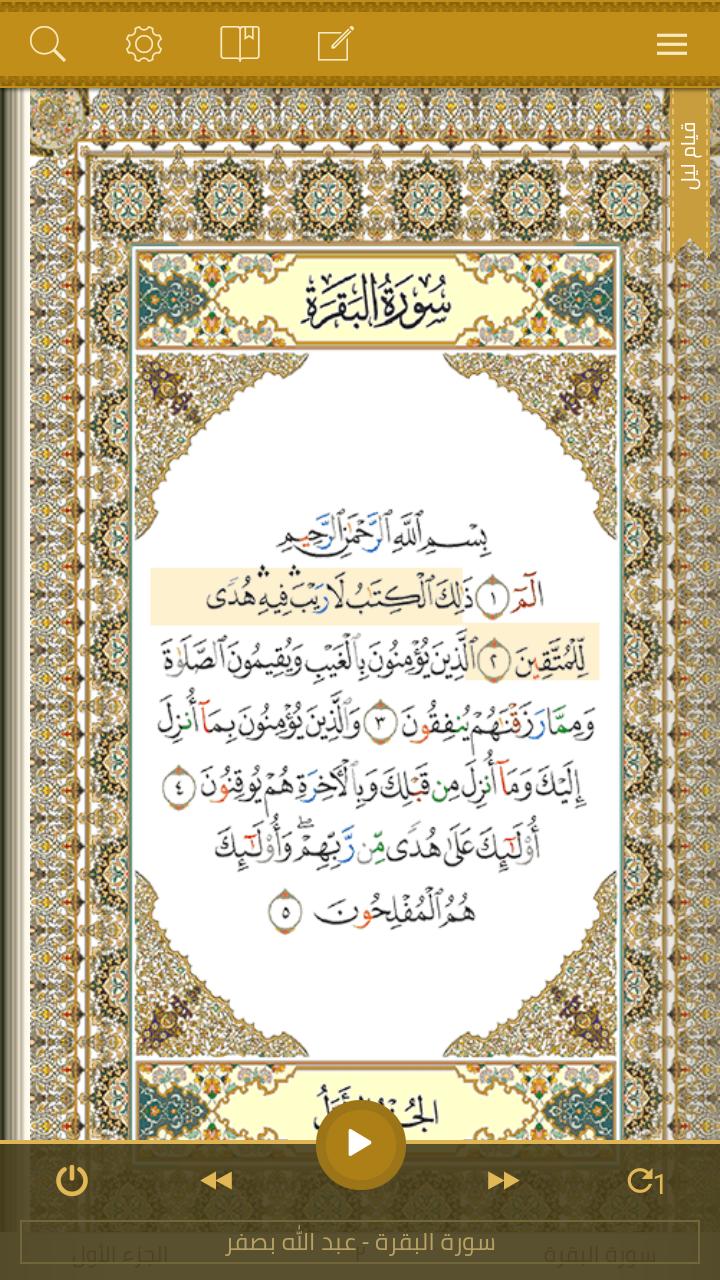 قيام ليل
سُورَةُ البَقَرَةِ
بِسْمِ ٱللَّهِ ٱلرَّحْمَٰنِ ٱلرَّحِيمِ
الٓمٓ ١ ذَٰلِكَ ٱلْكِتَٰبُ لَا رَيْبَ ۛ فِيهِ ۛ هُدًى
لِّلْمُتَّقِينَ ٢ ٱلَّذِينَ يُؤْمِنُونَ بِٱلْغَيْبِ وَيُقِيمُونَ ٱلصَّلَوٰةَ
وَمِمَّا رَزَقْنَٰهُمْ يُنفِقُونَ ٣ وَٱلَّذِينَ يُؤْمِنُونَ بِمَآ أُنزِلَ
إِلَيْكَ وَمَآ أُنزِلَ مِن قَبْلِكَ وَبِٱلْءَاخِرَةِ هُمْ يُوقِنُونَ ٤
أُو۟لَٰٓئِكَ عَلَىٰ هُدًى مِّن رَّبِّهِمْ ۖ وَأُو۟لَٰٓئِكَ
هُمُ ٱلْمُفْلِحُونَ ٥
1
سورة البقرة - عبد الله بصفر
سورة البقرة
الجزء الأول